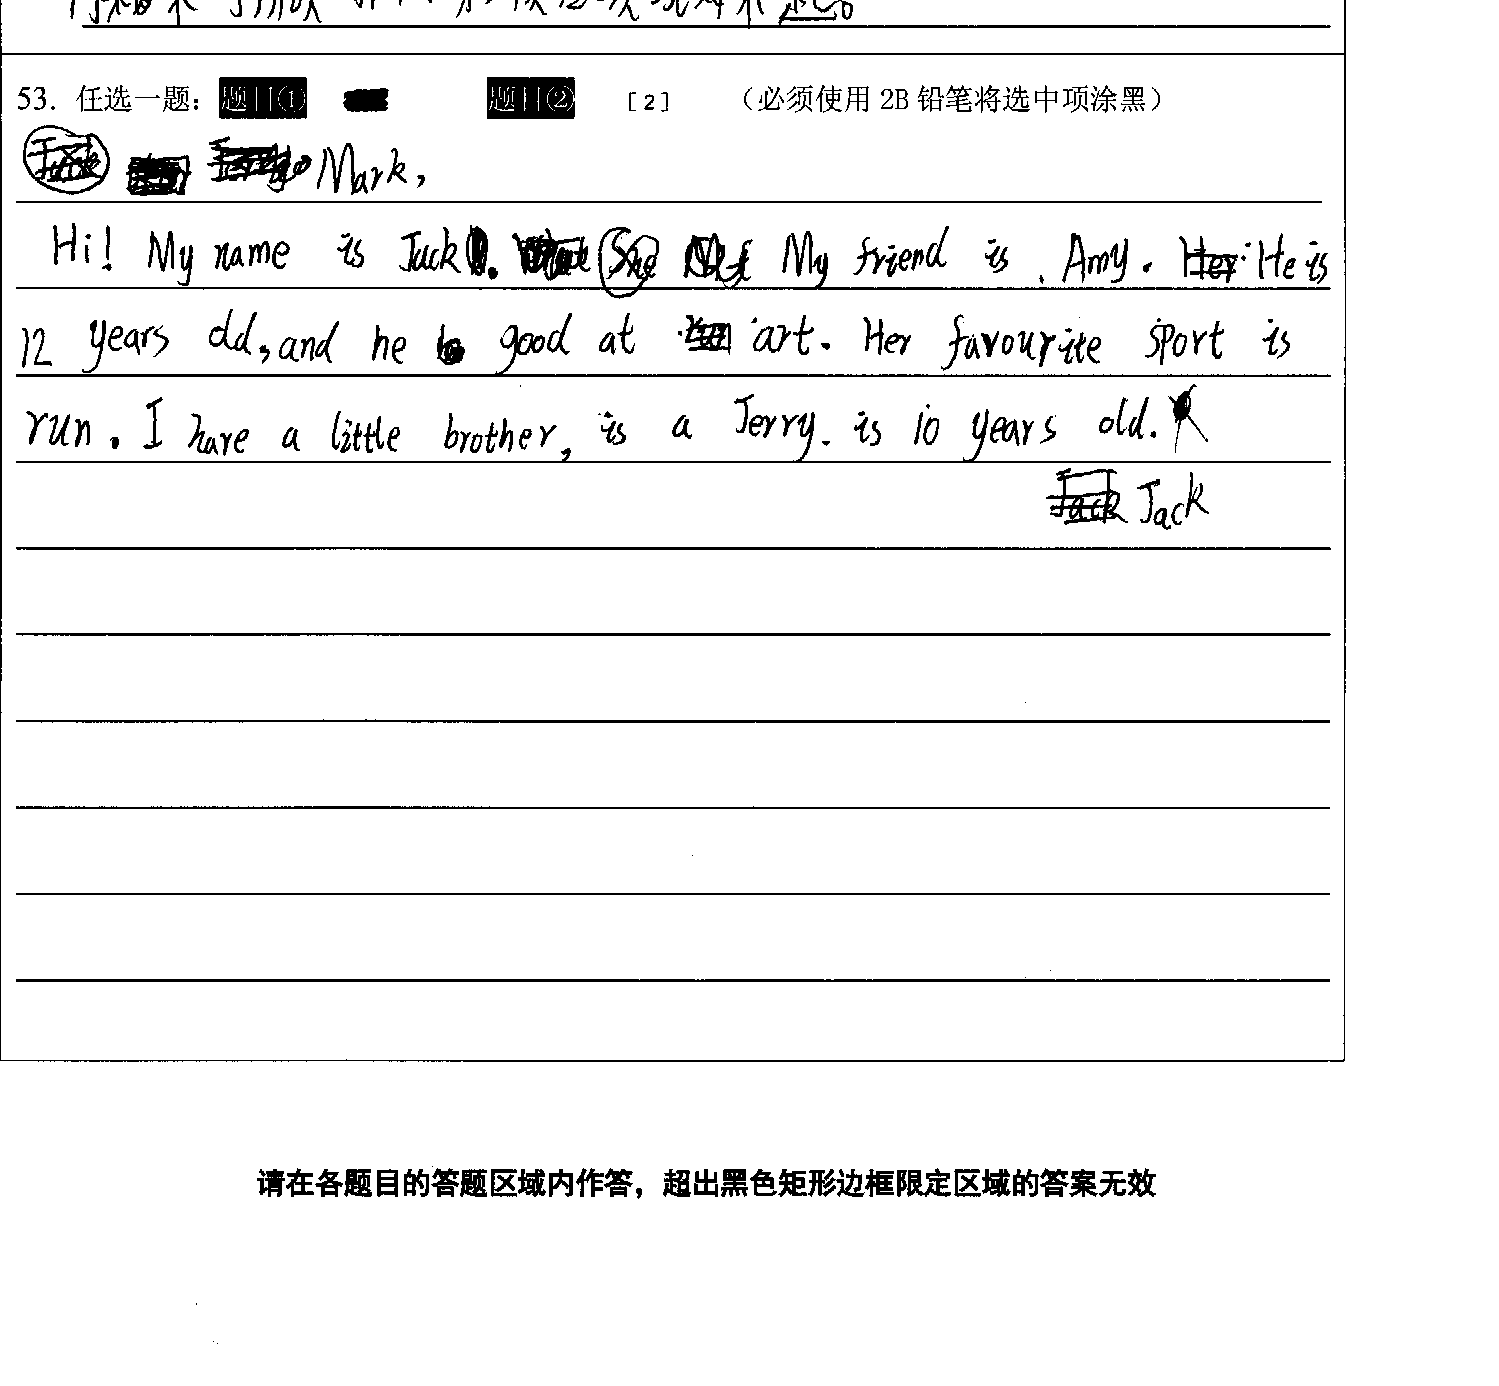 53. 任选一题： 题目① 题目② [2] （必须使用 2B 铅笔将选中项涂黑）
Mark,
Hi! My name is Jack. She My friend is . Amy. Her. He is
12 years old, and he is good at art. Her favourite sport is
run. I have a little brother, is a Jerry. is 10 years old.
Jack Jack
请在各题目的答题区域内作答，超出黑色矩形边框限定区域的答案无效